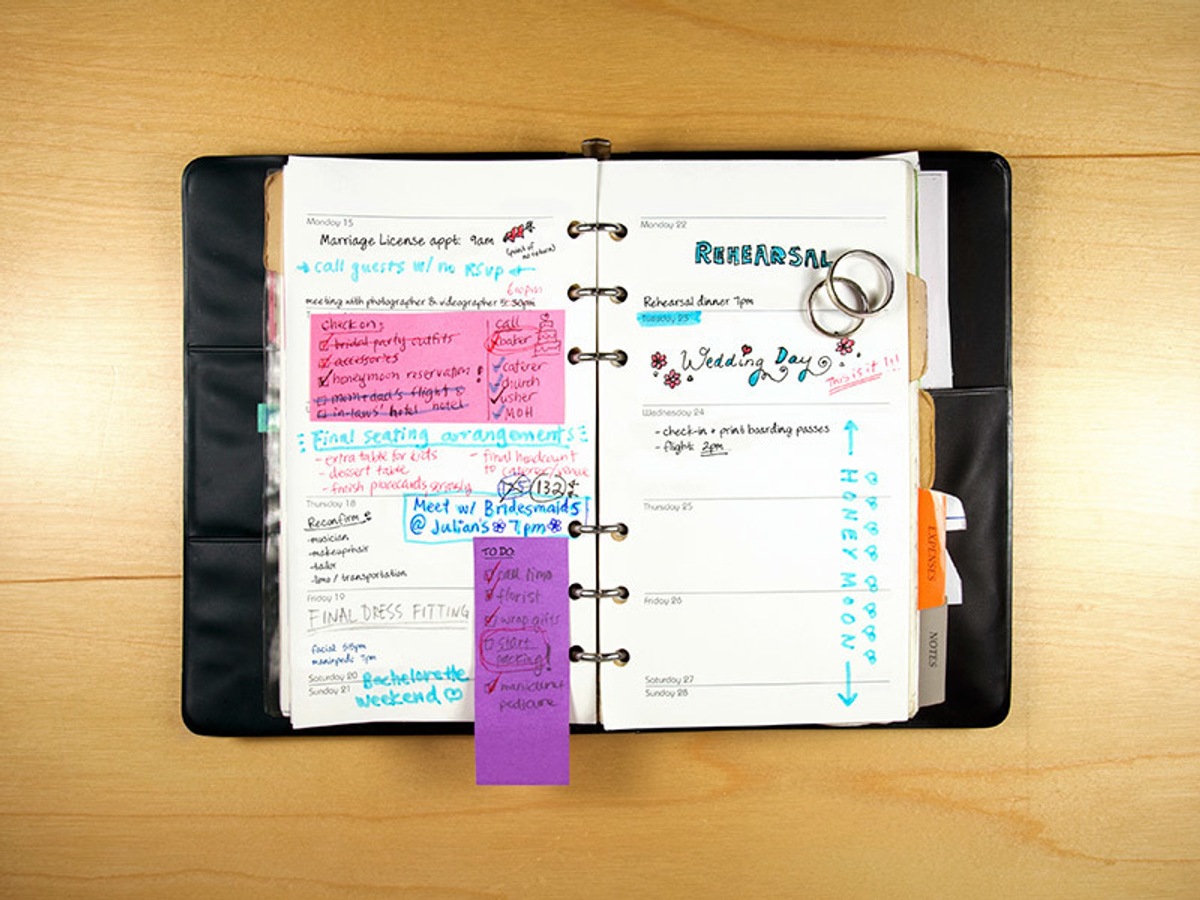 Monday 15
Marriage License appt: 9am
(point of
no return)
call guests w/ no RSVP
6:00pm
meeting with photographer & videographer 5:30pm
Check on:
bridal party outfits
accessories
honeymoon reservation !
mom + dad's flight &
in-laws' hotel hotel
call
baker
caterer
church
usher
MOH
Final seating arrangements
- extra table for kids
- dessert table
- finish placecards, grossly
- final headcount
to caterer/venue
125 132
Thursday 18
Reconfirm:
-musician
-makeup/hair
-tailor
-limo / transportation
Meet w/ Bridesmaids
@ Julian's 7pm
TO DO:
call limo
florist
wrap gifts
start
packing!
manicure +
pedicure
Friday 19
FINAL DRESS FITTING
facial 5:15pm
mani/pedi 7pm
Saturday 20
Sunday 21
Bachelorette
Weekend
Monday 22
REHEARSAL
Rehearsal dinner 7pm
Tuesday 23
Wedding Day
This is it!!!
Wednesday 24
- check-in + print boarding passes
- flight: 2pm
Thursday 25
HONEY MOON
Friday 26
Saturday 27
Sunday 28
EXPENSES
NOTES